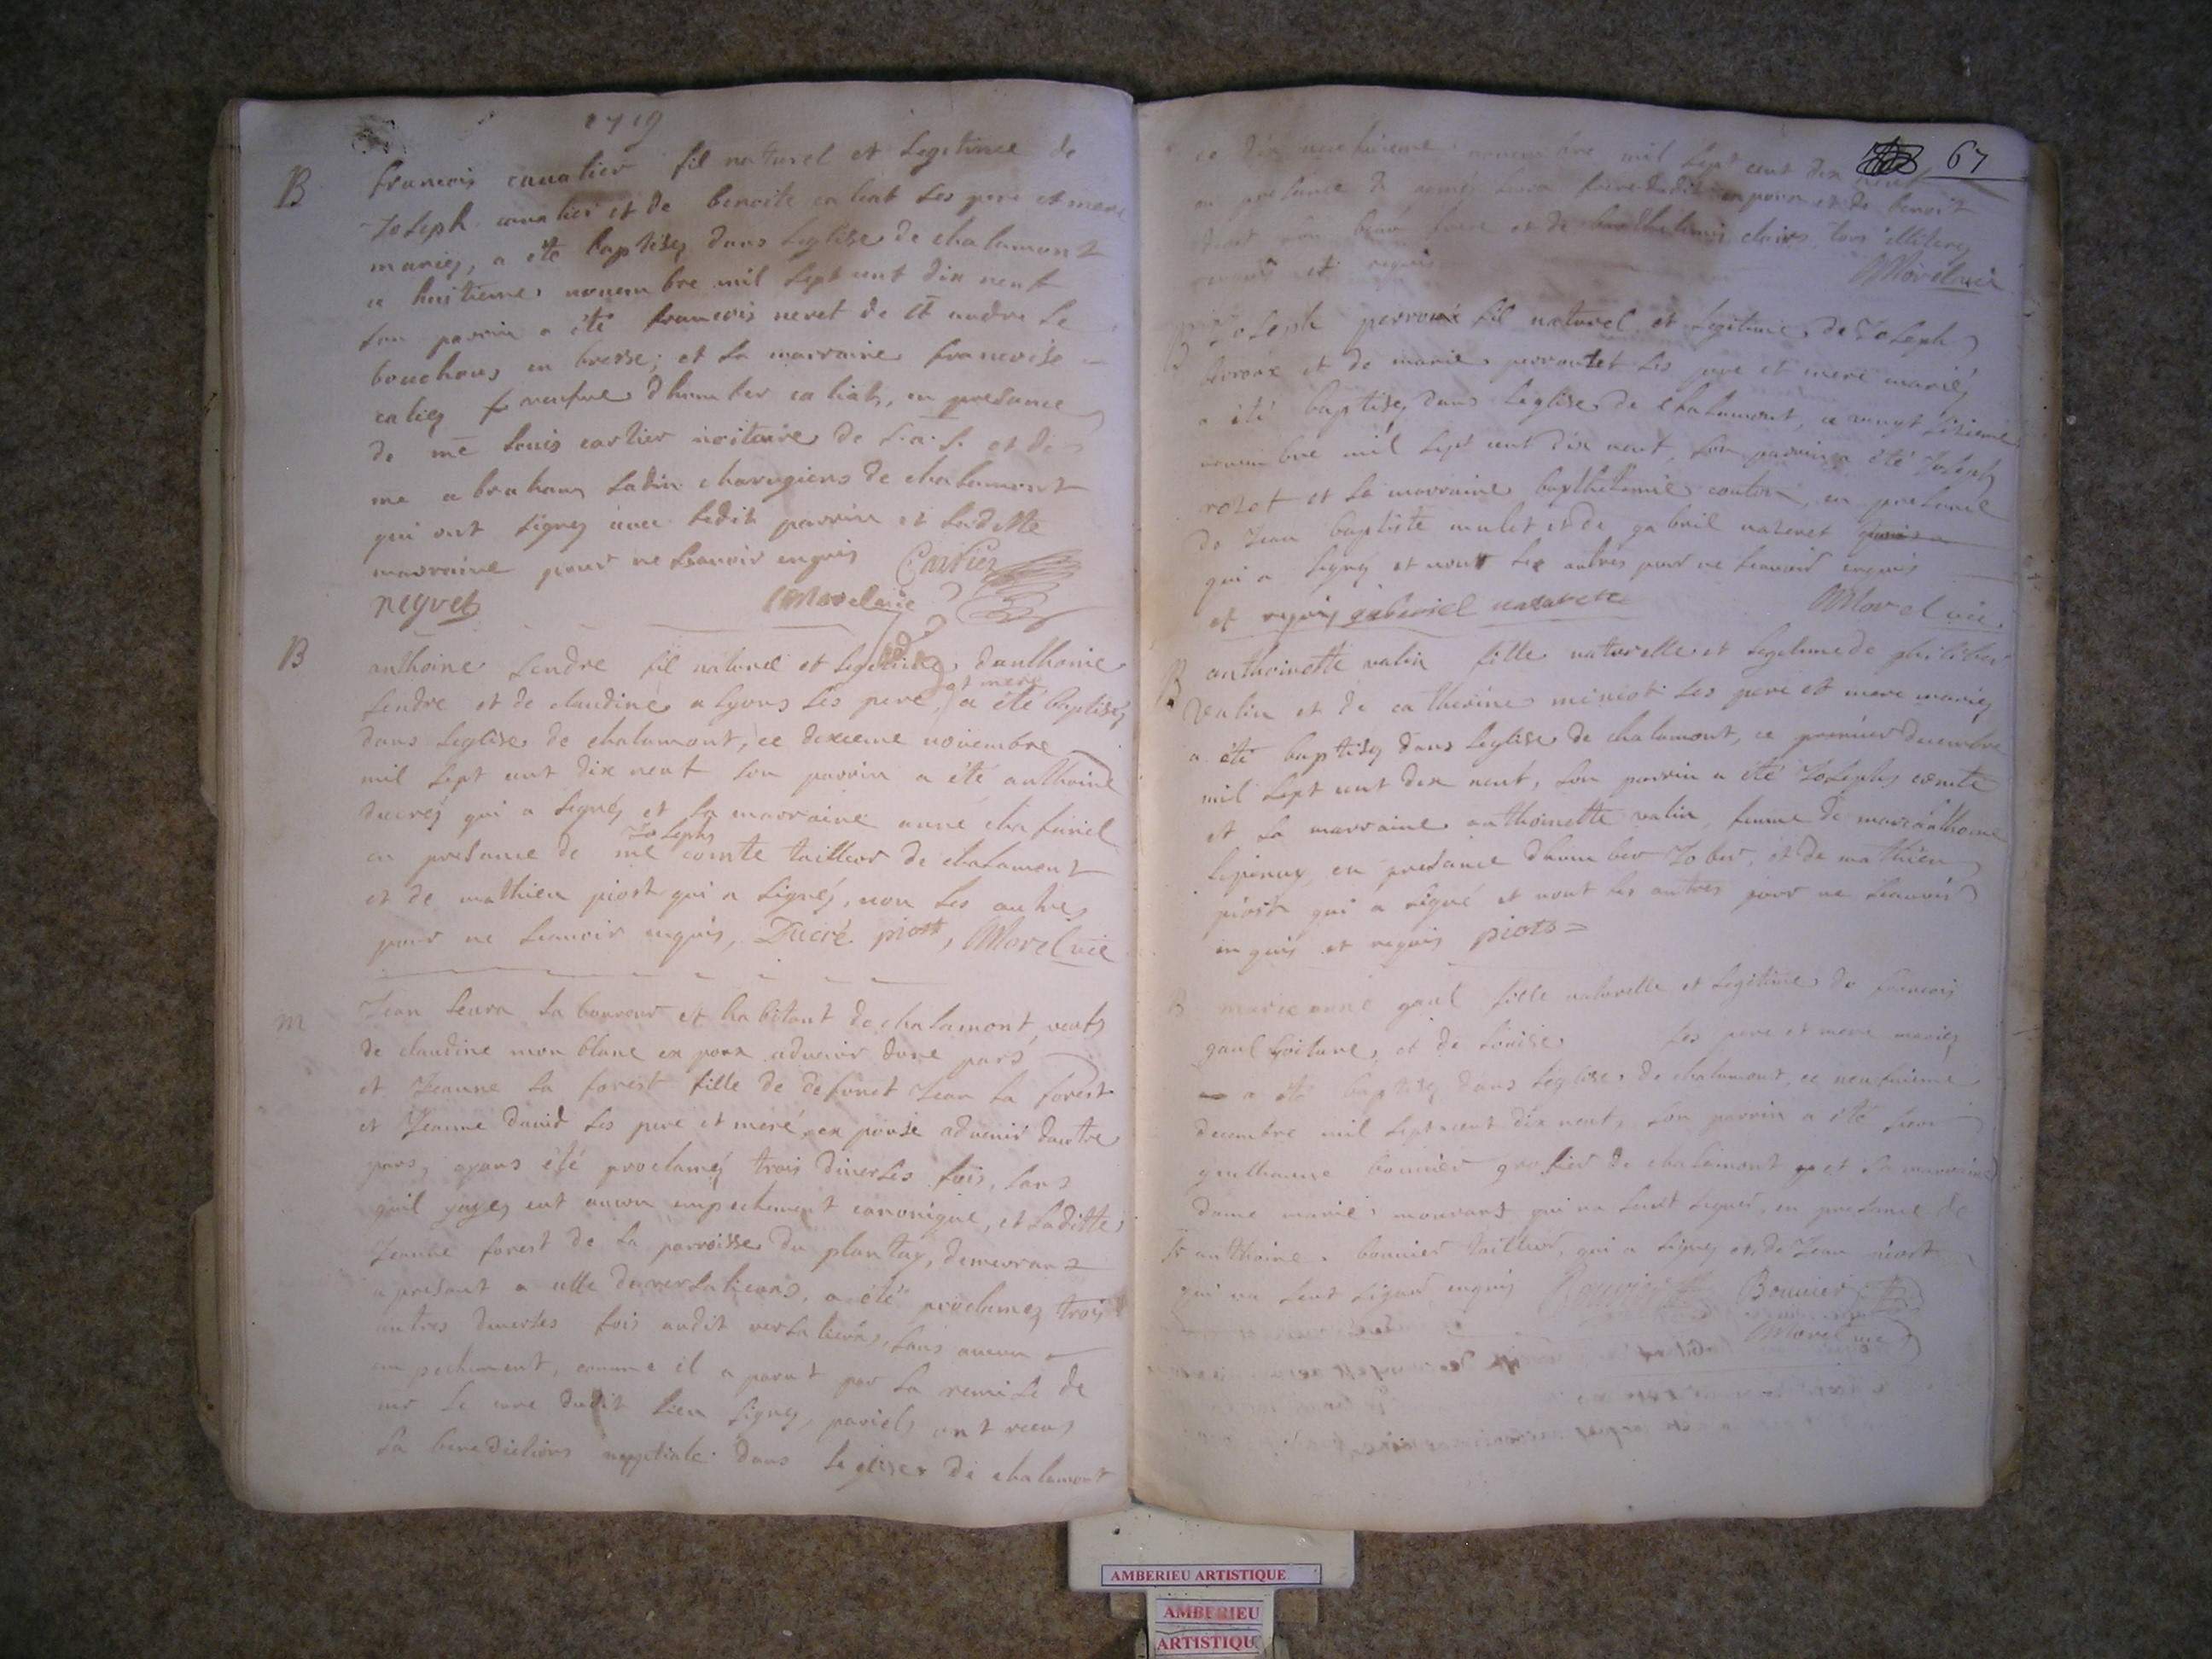 1719
B
francois cavalier fil naturel et Legitime de
Joseph cavalier et de benoite caliat Ses pere et mere
mariez, a été baptisez dans Leglise de chalamont
ce huitieme novembre mil Sept cent dix neuf
Son parrin a été francois neret de St andre Le
bouchous en bresse; et La marraine francoise
veufve dhumber caliat, en presance
de me Louis cartier noitaire de S.A.S. et de
me abraham Ladin charugiens de chalamont
qui ont Signez avec Ledit parrin et Laditte
marraine pour ne Scavoir enquis Cartier
neyret Morel vic
B
anthoine Sendre fil naturel et Legitime danthonie
Sendre et de claudine alyons Ses pere et mere a été baptisez
dans Leglise de chalamont, ce dixieme novembre
mil Sept cent dix neuf Son parrin a été anthoine
ducréz qui a Signéz et La marraine anne
en presance de me Josephs comte tailleur de chalamont
et de mathieu piost qui a Signéz, non Les autres
pour ne Scavoir enquis, Ducré piost, Morel vic
m
Jean Seura Laboureur et habitant de chalamont, veufs
de claudine mon blanc epoux advenir dune pars
et Jeanne La forest fille de defunct Jean La forest
et Jeanne david Ses pere et mere, epouse advenir dautre
pars, ayans été proclaméz trois diverses fois, Sans
quil y aye eut aucun empechement canonique, et Laditte
Jeanne forest de La parroisse du plantay, demeurant
a presant a celle de versalieans, a été proclamez trois
autres diverses fois audit versalieans, Sans aucun
empechement, comme il a parut par La remise de
mr Le cure dudit Lieu Signez, pariels ont receus
La benedictions nuptiale dans Leglise de chalamont
67
ce dix neufvieme novembre mil Sept cent dix neuf
en presance de Seura frere dudit epoux et de benoit
beau frere et de barthelemis clairs, tous illiterez
requis
Morel vic
B
Joseph perroux fil naturel et Legitime de Joseph
perroux et de marie perroutet Ses pere et mere mariéz
a été baptisez dans Leglise de chalamont, ce vingt Sixieme
novembre mil Sept cent dix neuf, Son parrin a été Joseph
rozet et La marraine barthelemie couton, en presance
de Jean baptiste mulet et de gabriel nazaret
qui a Signez et nont Les autres pour ne Scavoir enquis
et requis gabriel nazarete Morel vic
B
anthoinette valin fille naturelle et Legitime de philiber
valin et de catherine miniot Ses pere et mere mariez
a été baptisez dans Leglise de chalamont, ce premier decembre
mil Sept cent dix neuf, Son parrin a été Josephs comte
et La marraine anthoinette valin, femme de marcanthoine
en presance dhumber Jober, et de mathieu
piost qui a signé et nont les autres pour ne Scavoir
enquis et requis piots
B
marie anne gaul fille naturelle et Legitime de francois
gaul et de Louise Ses pere et mere mariez
a été baptisez dans Leglise de chalamont, ce neufvieme
decembre mil Sept cent dix neuf, Son parrin a été Sieur
guilhaume bouvier grefier de chalamont et La marraine
dame marie qui na Sceut Signer, en presance de
Sr anthoine bouvier tailleur, qui a Signez et de Jean piost
qui na Sceut Signer enquis Bouvier Bouvier
Morel vic
AMBERIEU ARTISTIQUE
AMBERIEU
ARTISTIQU